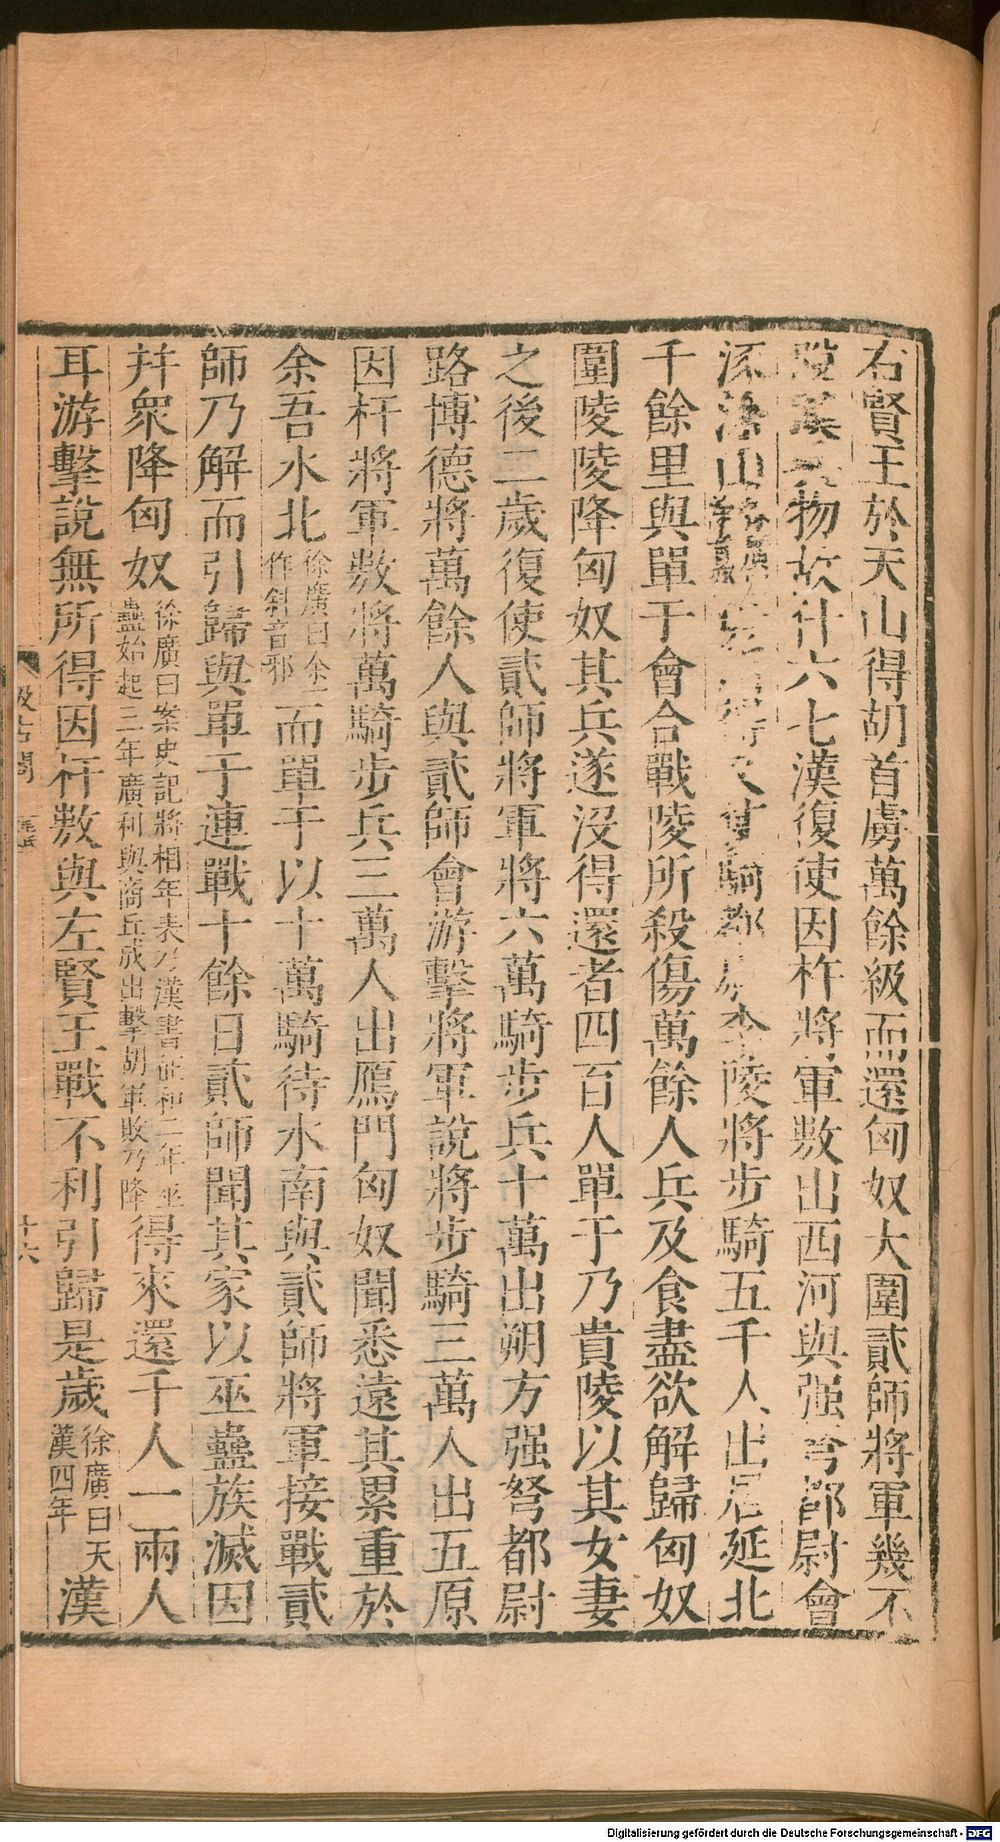 右賢王於天山得胡首虜萬餘級而還匈奴大圍貳師將軍幾不
脫漢兵物故什六七漢復使因杅將軍敖出西河與强弩都尉會
涿涂山騎都尉李陵將步騎五千人出居延北
千餘里與單于會合戰陵所殺傷萬餘人兵及食盡欲解歸匈奴
圍陵陵降匈奴其兵遂沒得還者四百人單于乃貴陵以其女妻
之後二歲復使貳師將軍將六萬騎步兵十萬出朔方强弩都尉
路博德將萬餘人與貳師會游擊將軍說將步騎三萬人出五原
因杅將軍敖將萬騎步兵三萬人出鴈門匈奴聞悉遠其累重於
余吾水北徐廣曰余一作斜音邪而單于以十萬騎待水南與貳師將軍接戰貳
師乃解而引歸與單于連戰十餘日貳師聞其家以巫蠱族滅因
幷衆降匈奴徐廣曰案史記將相年表乃漢書征和二年巫蠱始起三年廣利與商丘成出擊胡軍敗乃降得來還千人一兩人
耳游擊說無所得因杅敖與左賢王戰不利引歸是歲徐廣曰天漢四年漢
汲古閣
十六
Digitalisierung gefördert durch die Deutsche Forschungsgemeinschaft - DFG